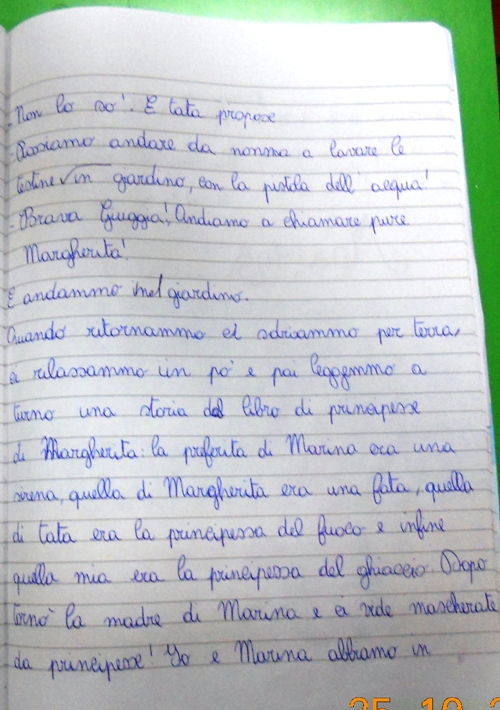 -Non lo so'. E tata propose
-Possiamo andare da nonna a lavare le
testine in giardino, con la pistola dell'acqua!
-Brava Giuggia! Andiamo a chiamare pure
Margherita!
E andammo nel giardino.
Quando ritornammo ci sdraiammo per terra,
ci rilassammo un po' e poi leggemmo a
turno una storia del libro di principesse
di Margherita: la preferita di Marina era una
sirena, quella di Margherita era una fata, quella
di tata era la principessa del fuoco e infine
quella mia era la principessa del ghiaccio. Dopo
tornò la madre di Marina e ci vide mascherate
da principesse! Io e Marina abbiamo in
25 10 2